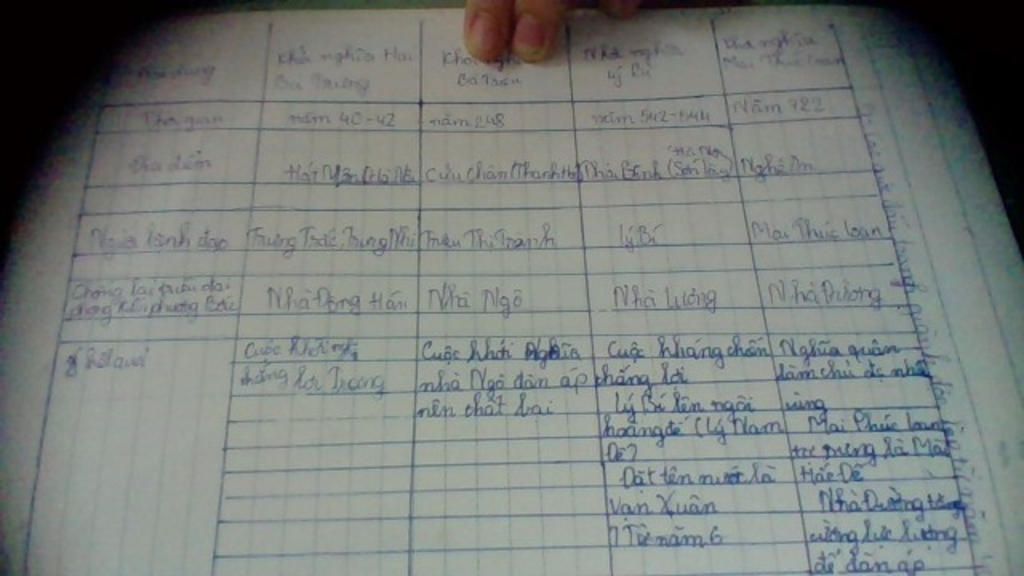 Nội dung
Khởi nghĩa Hai
Bà Trưng
Khởi nghĩa
Bà Triệu
Nhà nghĩa
Lý Bí
Khởi nghĩa
Mai Thúc Loan
Thời gian
năm 40-42
năm 248
năm 542-544
Năm 722
Địa điểm
Hát Môn (Hà Nội)
Cửu Chân (Thanh Hoá)
Thái Bình (Sơn Tây)
Hà Nội
Nghệ An
Người lãnh đạo
Trưng Trắc, Trưng Nhị
Triệu Thị Trinh
Lý Bí
Mai Thúc Loan
Chống lại triều đại
phong kiến phương Bắc
Nhà Đông Hán
Nhà Ngô
Nhà Lương
Nhà Đường
Kết quả
Cuộc khởi nghĩa
thắng lợi Trong
Cuộc khởi nghĩa
nhà Ngô đàn áp
nên thất bại
Cuộc kháng chiến
thắng lợi
Lý Bí lên ngôi
hoàng đế (Lý Nam
Đế)
Đặt tên nước là
Vạn Xuân
Từ năm 6
Nghĩa quân
làm chủ nhiều
vùng
Mai Thúc Loan
xưng là Mai
Hắc Đế
Nhà Đường tăng
cường lực lượng
để đàn áp